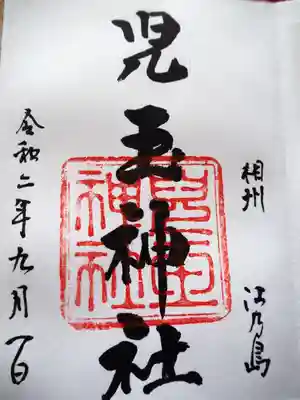 相州 江乃島
児玉神社
児玉
神社
令和二年九月一日